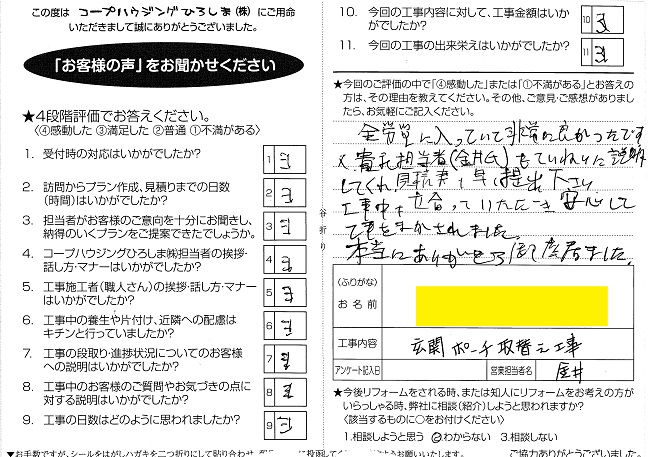 この度は コープハウジングひろしま(株) にご用命
いただきまして誠にありがとうございました。
「お客様の声」をお聞かせください
★4段階評価でお答えください。
〈④感動した ③満足した ②普通 ①不満がある〉
1. 受付時の対応はいかがでしたか?
1
2. 訪問からプラン作成、見積りまでの日数
(時間)はいかがでしたか?
2
3. 担当者がお客様のご意向を十分にお聞きし、
納得のいくプランをご提案できたでしょうか。
3
4. コープハウジングひろしま㈱担当者の挨拶・
話し方・マナーはいかがでしたか?
4
5. 工事施工者(職人さん)の挨拶・話し方・マナー
はいかがでしたか?
5
6. 工事中の養生や片付け、近隣への配慮は
キチンと行っていましたか?
6
7. 工事の段取り・進捗状況についてのお客様
への説明はいかがでしたか?
7
8. 工事中のお客様のご質問やお気づきの点に
対する説明はいかがでしたか?
8
9. 工事の日数はどのように思われましたか?
9
谷折り
10. 今回の工事内容に対して、工事金額はいか
がでしたか?
10
11. 今回の工事の出来栄えはいかがでしたか?
11
★今回のご評価の中で「④感動した」または「①不満がある」とお答えの
方は、その理由を教えてください。その他、ご意見・ご感想がありまし
たら、お気軽にご記入ください。
に入っていて非常に良かったです
貴社担当者(金井氏)もていねいに説明
してくれ見積書も早く提出下さい
工事中も立合っていただき安心して
工事をまかされました。
本当にありがとう御座居ました。
(ふりがな)
お名前
工事内容
玄関ポーチ取替え工事
アンケート記入日
営業担当者名
金井
★今後リフォームをされる時、または知人にリフォームをお考えの方が
いらっしゃる時、弊社に相談(紹介)しようと思われますか?
〈該当するものに○をお付けください〉
1.相談しようと思う ②わからない 3.相談しない
▼お手数ですが、シールをはがしハガキを二つ折りにして貼り合わせ、
ご協力ありがとうございました。